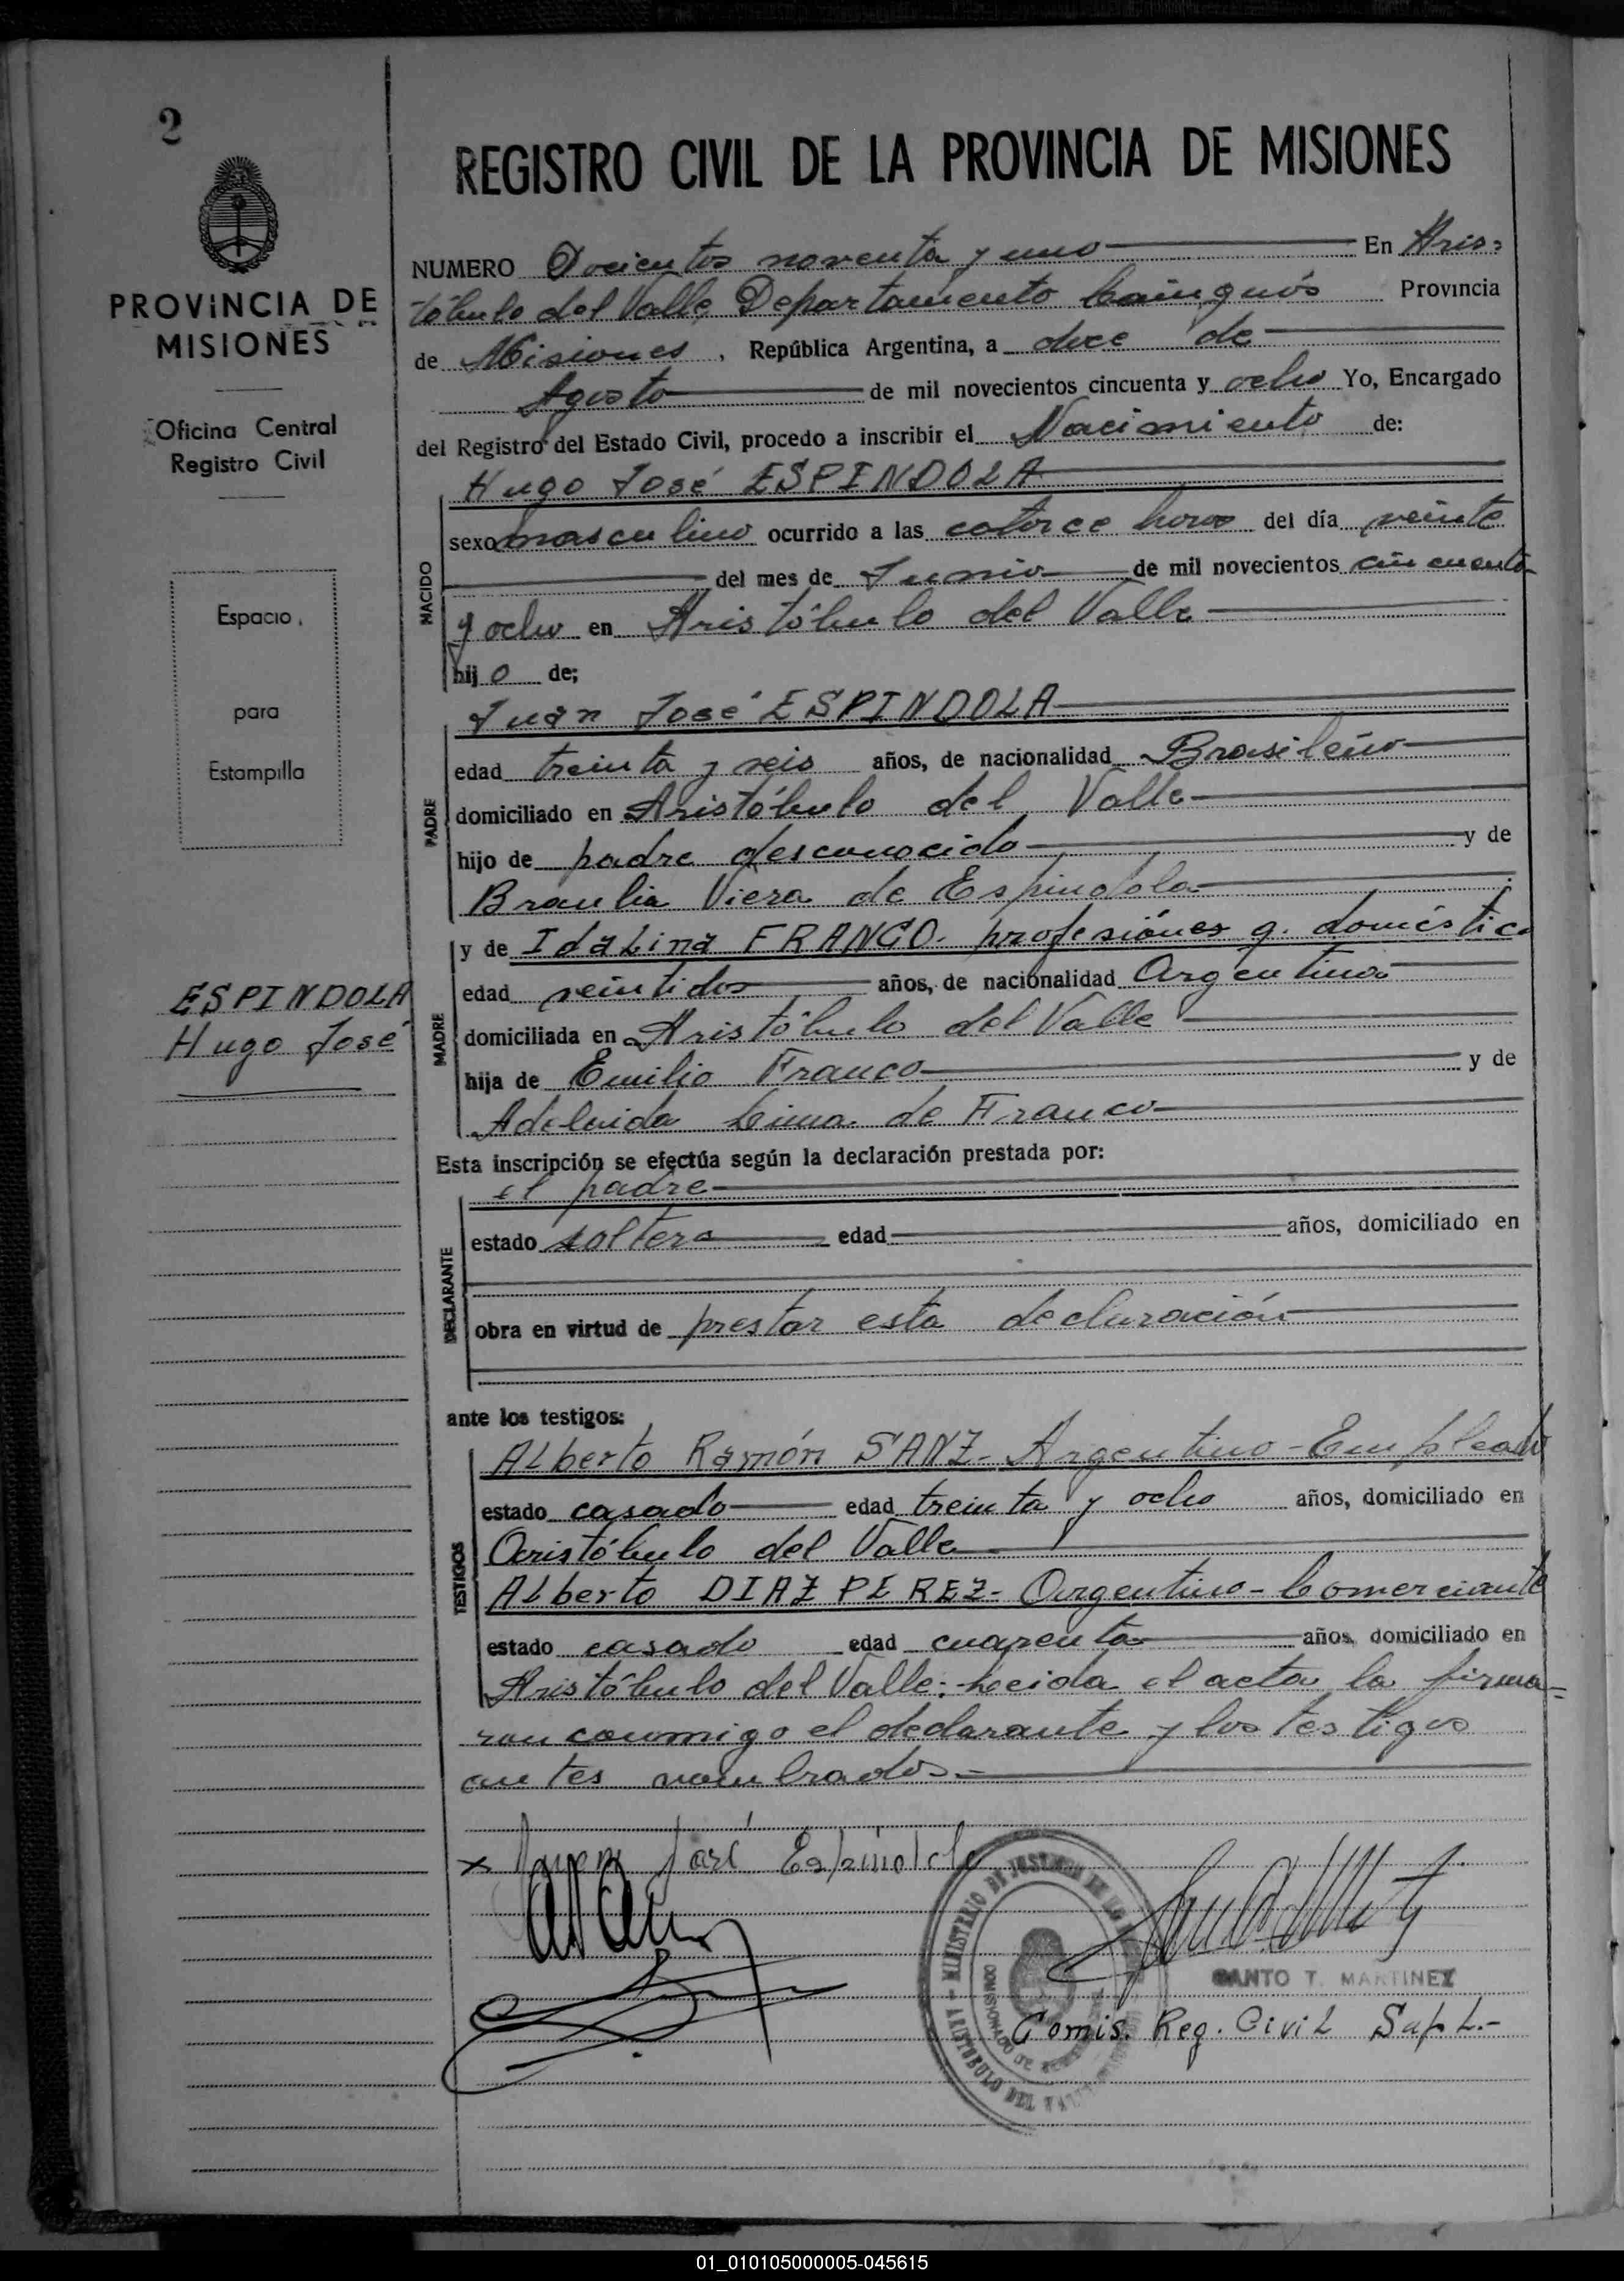 2
PROVINCIA DE
MISIONES
Oficina Central
Registro Civil
Espacio
para
Estampilla
ESPINDOLA
Hugo José
REGISTRO CIVIL DE LA PROVINCIA DE MISIONES
NUMERO Docientos noventa y uno En Aris=
tóbulo del Valle Departamento Cainguás Provincia
de Misiones, República Argentina, a doce de
Agosto de mil novecientos cincuenta y ocho Yo, Encargado
del Registro del Estado Civil, procedo a inscribir el Nacimiento de:
Hugo José ESPINDOLA
NACIDO
sexo masculino ocurrido a las catorce horas del día veinte
del mes de Junio de mil novecientos cincuenta
y ocho en Aristóbulo del Valle
hijo de;
Juan José ESPINDOLA
PADRE
edad treinta y seis años, de nacionalidad Brasileño
domiciliado en Aristóbulo del Valle
hijo de padre desconocido y de
Braulia Viera de Espindola
y de Idalina FRANCO. profesiónes q. doméstica
MADRE
edad veintidos años, de nacionalidad Argentina
domiciliada en Aristóbulo del Valle
hija de Emilio Franco y de
Adelaida Lima de Franco
Esta inscripción se efectúa según la declaración prestada por:
el padre
DECLARANTE
estado soltero edad años, domiciliado en
obra en virtud de prestar esta declaración
ante los testigos:
Alberto Ramón SANZ- Argentino-Empleado
TESTIGOS
estado casado edad treinta y ocho años, domiciliado en
Aristóbulo del Valle
Alberto DIAZ PEREZ- Argentino-Comerciante
estado casado edad cuarenta años, domiciliado en
Aristóbulo del Valle: Leida el acta la firma=
ron conmigo el declarante y los testigos
antes nombrados.-
x Juan José Espindola
MINISTERIO DE JUSTICIA
ARISTOBULO DEL VALLE
SANTO T. MARTINEZ
Comis. Reg. Civil Supl.-
01_010105000005-045615